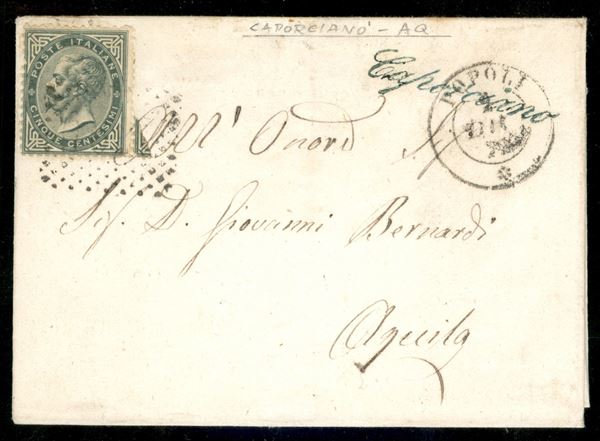 CAPORCIANO - AQ
POSTE ITALIANE
CINQUE CENTESIMI
Caporciano
POPOLI
All' Onord
Sig. D. Giovanni Bernardi
Aquila